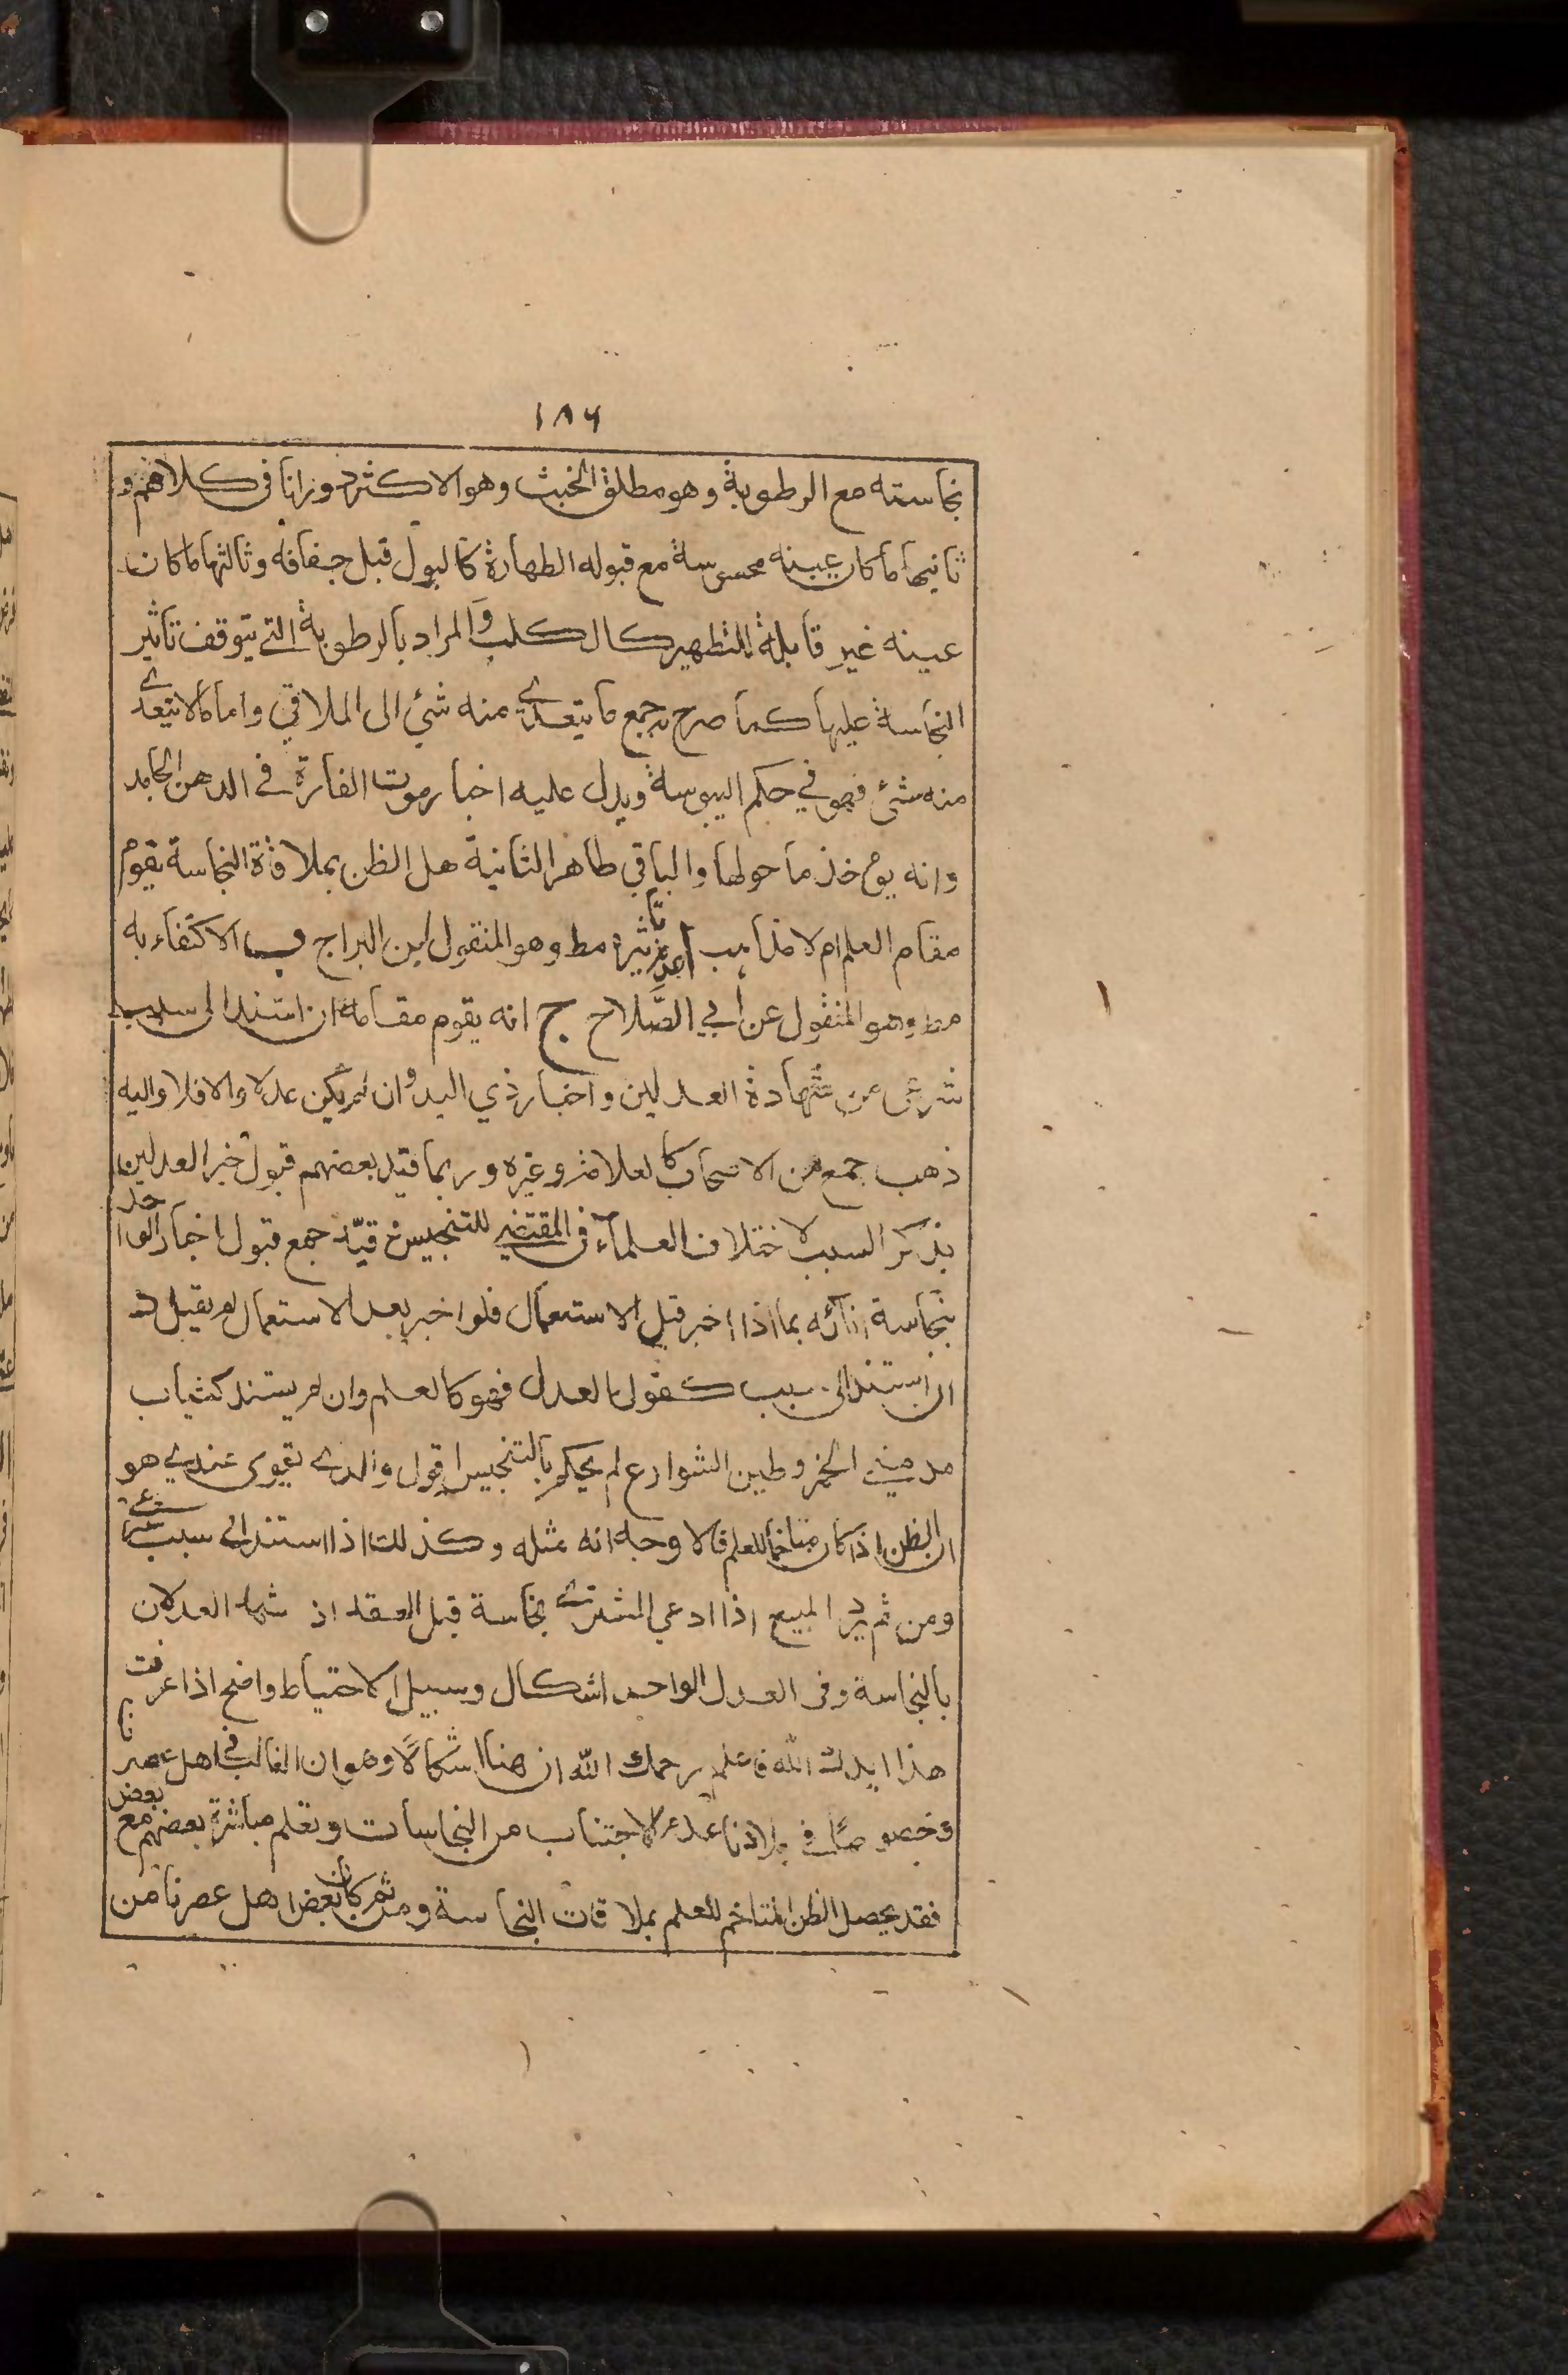 ١٨٦
نجاسته مع الرطوبة وهو مطلق الخبث وهو الاكثر دورانا في كلامهم و
ثانيها ما كان عينه محسوسة مع قبوله الطهارة كالبول قبل جفافه وثالثها ما كان
عينه غير قابلة للتطهير كالكلب والمراد بالرطوبة التي يتوقف تأثير
النجاسة عليها كما صرح به جمع ما يتعدى منه شئ الى الملاقي واما ما لا يتعدى
منه شئ فهو في حكم اليبوسة ويدل عليه اخبار موت الفارة في الدهن الجامد
وانه يؤخذ ما حولها والباقي طاهر الثانية هل الظن بملاقاة النجاسة يقوم
مقام العلم ام لا مذاهب ا عدم تاثيره مط وهو المنقول ابن البراج ب الاكتفاء به
مط وهو المنقول عن أبي الصَّلاح ج انه يقوم مقامه ان استند الى سبب
شرعى من شهادة العدلين واخبار ذي اليد وان لم يكن عدلا والا فلا واليه
ذهب جمع من الاصحاب كالعلامة وغيره وربما قيد بعضهم قبول خبر العدلين
بذكر السبب لاختلاف العلماء في المقتضى للتنجيس وقيّد جمع قبول اخبار الواحد
بنجاسة انائه بما اذا اخبر قبل الاستعمال فلو اخبر بعد الاستعمال لم يقبل د
ان استند الى سبب كقول العدل فهو كالعلم وان لم يستند كثياب
مدمني الخمر وطين الشوارع لم يحكم بالتنجيس اقول والذى يقوى عندي هو
ان الظن اذا كان متاخما للعلم فالاوجه انه مثله وكذلك اذا استند الى سبب شرعي
ومن ثم يرد المبيع اذا ادعي المشترى نجاسة قبل العقد اذ شهد العدلان
بالنجاسة وفى العدل الواحد اشكال وسبيل الاحتياط واضح اذا عرفت
هذا ايدك الله فاعلم رحمك الله ان هنا اشكالًا وهو ان الغالب في اهل عصرنا
وخصوصًا في بلادنا عدم الاجتناب من النجاسات ونعلم مباشرة بعضهم مع بعض
فقد يحصل الظن المتاخم للعلم بملاقات النجاسة ومن ثم كان بعض اهل عصرنا من